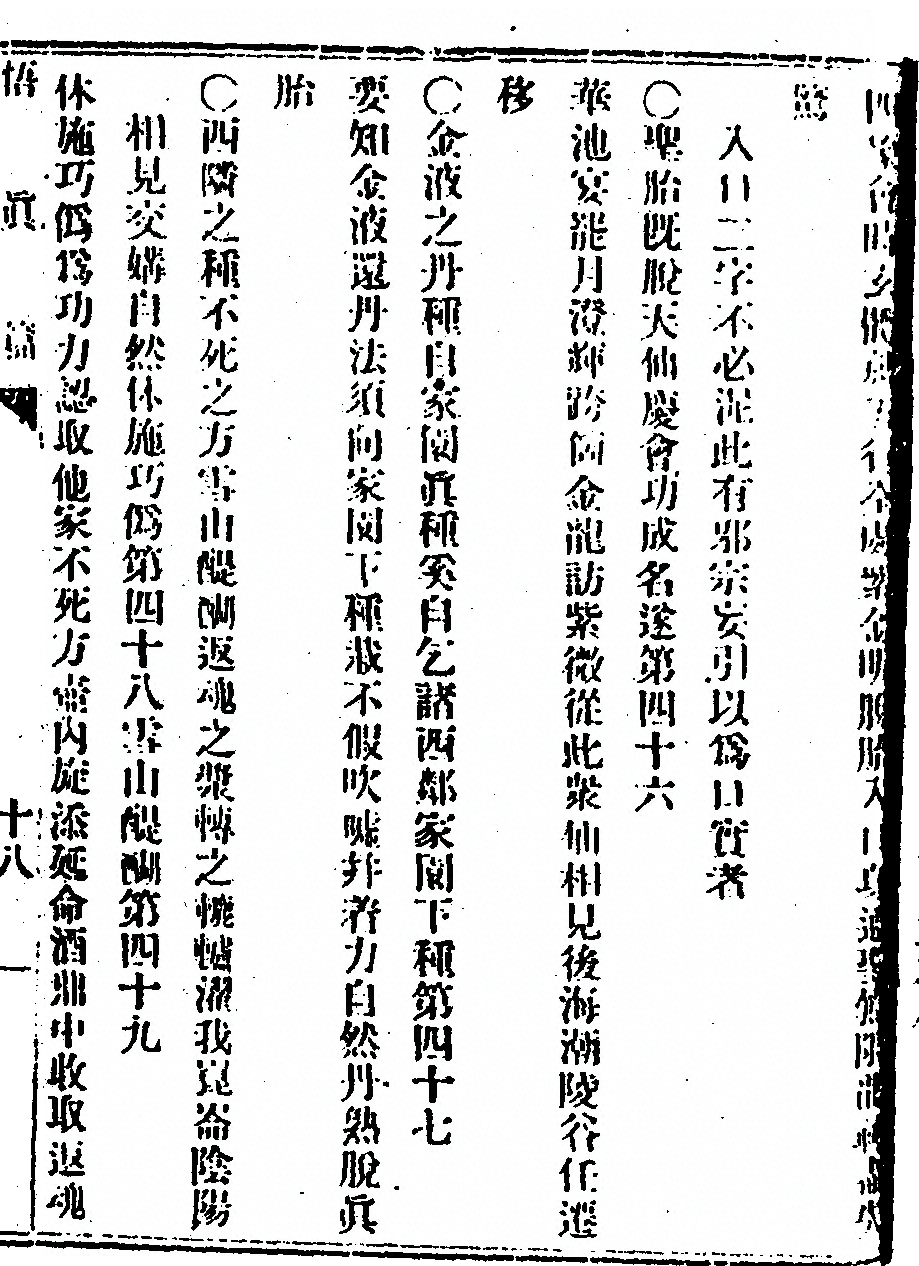 四象會時玄體就五行全處紫金明脫胎入口身通聖無限龍神盡失
驚
入口二字不必泥此有邪宗妄引以爲口實者
〇聖胎既脫天仙慶會功成名遂第四十六
華池宴罷月澄輝跨個金龍訪紫微從此衆仙相見後海潮陵谷任遷
移
〇金液之丹種自家園眞種奚自乞諸西鄰家園下種第四十七
要知金液還丹法須向家園下種栽不假吹噓幷着力自然丹熟脫眞
胎
〇西隣之種不死之方雪山醍醐返魂之漿轉之轆轤濯我崑崙陰陽
相見交媾自然休施巧僞第四十八雪山醍醐第四十九
休施巧僞爲功力認取他家不死方壼內旋添延命酒鼎中收取返魂
悟眞篇 十八